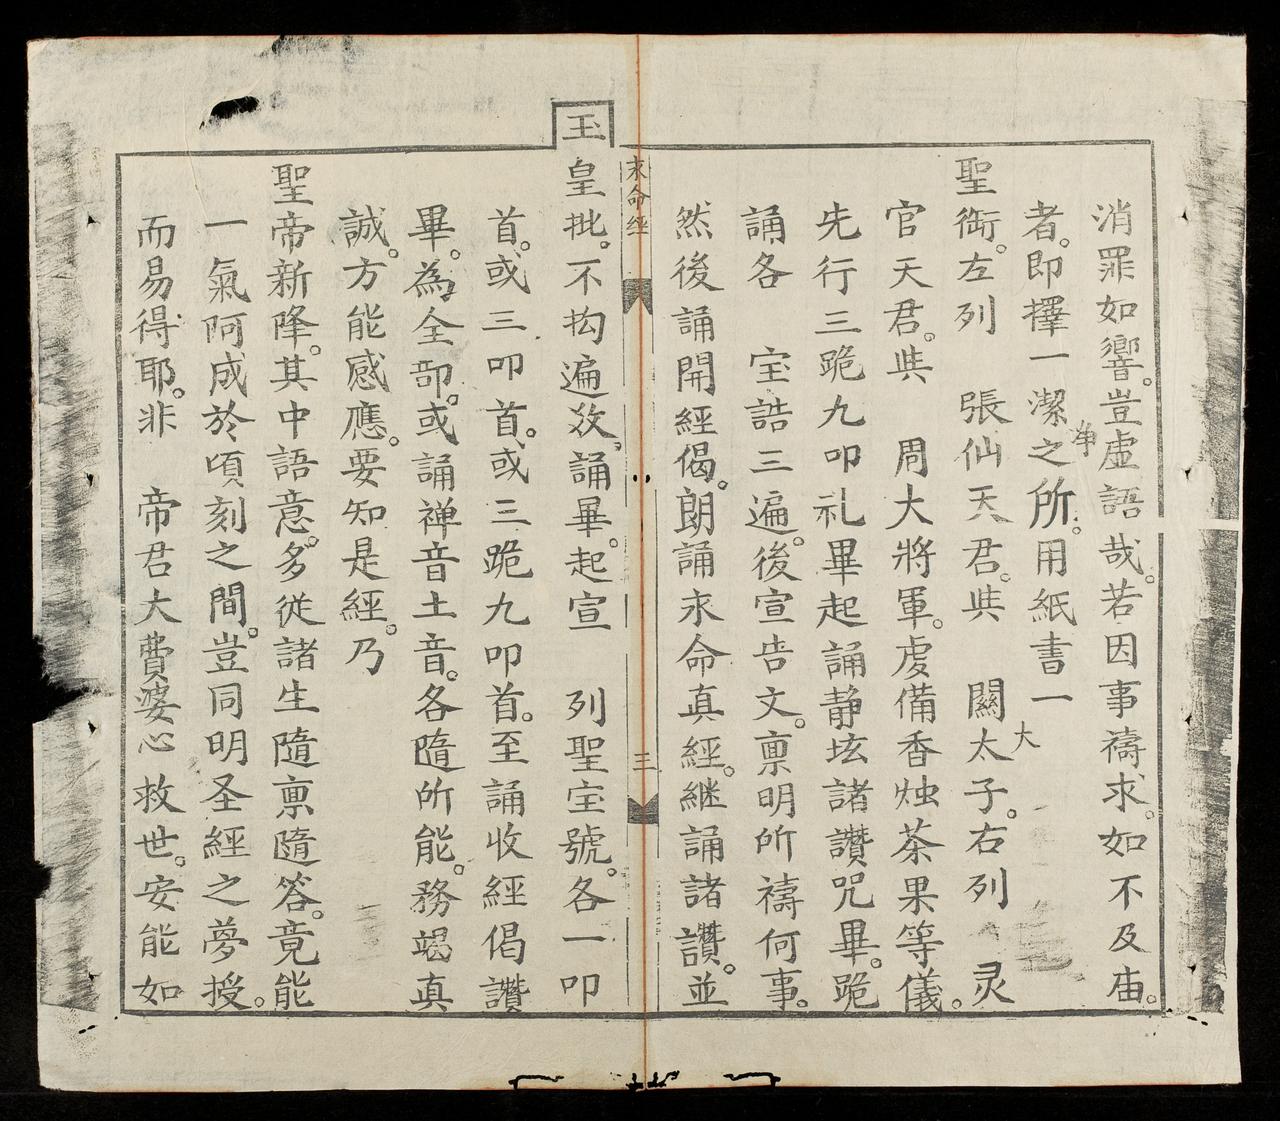 消罪如響。豈虛語哉。若因事禱求。如不及庙。
者。即擇一潔之所。用紙書一
净
大
聖衔。左列　張仙天君。㒷　關太子。右列　灵
官天君。㒷　周大將軍。虔備香烛茶果等儀。
先行三跪九叩礼畢起誦静坛諸讚咒畢。跪
誦各　宝誥三遍。後宣告文。禀明所禱何事。
然後誦開經偈。朗誦求命真經。継誦諸讚。並
求命經
三
玉皇批。不拘遍数。誦畢。起宣　列聖宝號。各一叩
首。或三叩首。或三跪九叩首。至誦收經偈讚
畢。為全部。或誦禅音土音。各隨所能。務竭真
誠。方能感應。要知是經。乃
聖帝新降。其中語意。多従諸生隨禀隨答。竟能
一氣阿成於頃刻之間。豈同明圣經之夢授。
而易得耶。非　帝君大費婆心救世。安能如